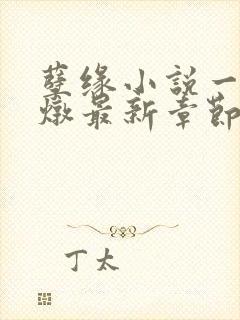 孽缘小説一
燉最新章節
丁太